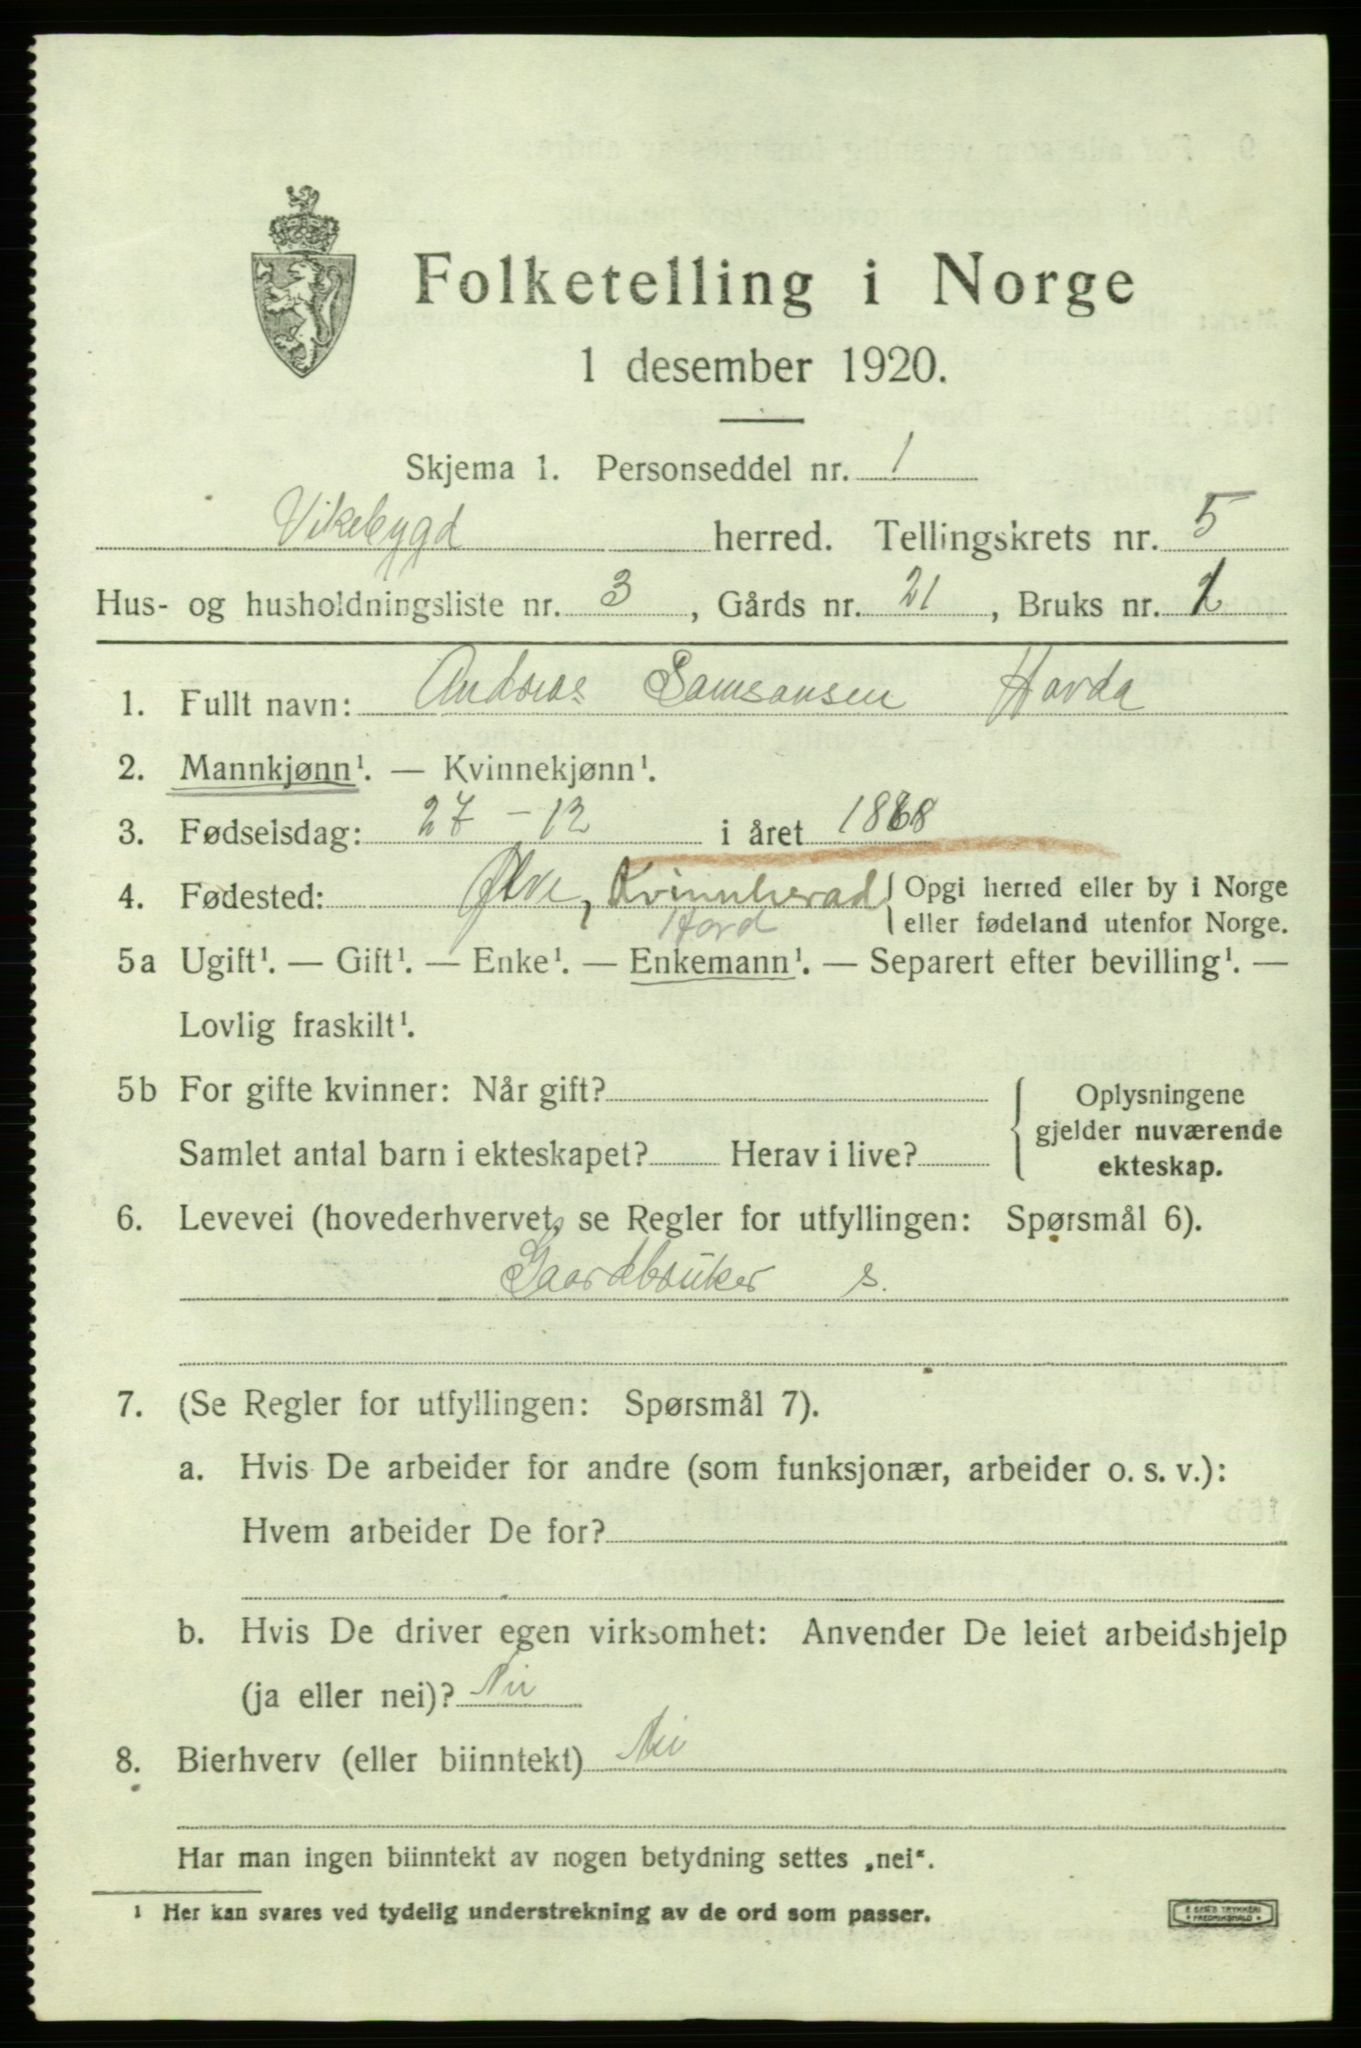 Folketelling i Norge
1 desember 1920.
Skjema 1. Personseddel nr. 1
Vikebygd herred. Tellingskrets nr. 5
Hus- og husholdningsliste nr. 3, Gårds nr. 21, Bruks nr.
1. Fullt navn: Andreas Samsonsen Havda
2. Mannkjønn¹. — Kvinnekjønn¹.
3. Fødselsdag: 27-12 i året 1868
4. Fødested: Ølve, Kvinnherad { Opgi herred eller by i Norge
Hord eller fødeland utenfor Norge.
5a Ugift¹. — Gift¹. — Enke¹. — Enkemann¹. — Separert efter bevilling¹. —
Lovlig fraskilt¹.
5b For gifte kvinner: Når gift? { Oplysningene
gjelder nuværende
Samlet antal barn i ekteskapet? Herav i live? ekteskap.
6. Levevei (hovederhvervet, se Regler for utfyllingen: Spørsmål 6).
Gaardbruker s.
7. (Se Regler for utfyllingen: Spørsmål 7).
a. Hvis De arbeider for andre (som funksjonær, arbeider o. s. v.):
Hvem arbeider De for?
b. Hvis De driver egen virksomhet: Anvender De leiet arbeidshjelp
(ja eller nei)? Nei
8. Bierhverv (eller biinntekt) Nei
Har man ingen biinntekt av nogen betydning settes „nei“.
1 Her kan svares ved tydelig understrekning av de ord som passer.